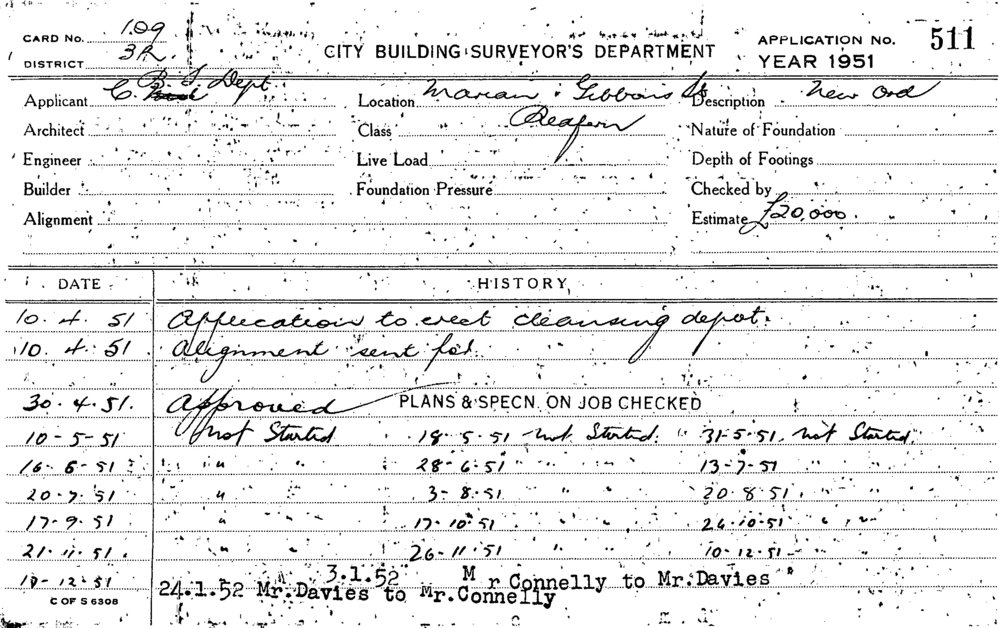 CARD No. 109 CITY BUILDING SURVEYOR'S DEPARTMENT APPLICATION No. 511
DISTRICT 3R. YEAR 1951
Applicant C. B. S Dept. Location Marian & Gibbons St Description New Ord
Architect Class Redfern Nature of Foundation
Engineer Live Load Depth of Footings
Builder Foundation Pressure Checked by
Alignment Estimate £20,000.
DATE HISTORY
10. 4. 51 Application to erect cleansing depot.
10. 4. 51 Alignment sent for.
30. 4. 51. Approved PLANS & SPECN. ON JOB CHECKED
10-5-51 Not Started 18. 5. 51 Not Started. 31-5-51. Not Started.
16-6-51 " " 28-6-51 " " 13-7-51 " "
20-7-51 " " 3-8-51 " " 20.8.51. " "
17-9-51 " " 17-10-51 " " 26-10-51 " "
21-11-51. " " 26-11-51 " " 10-12-51 - " "
" 3.1.52 Mr Connelly to Mr.Davies
24.1.52 Mr.Davies to Mr.Connelly
C OF S 6308